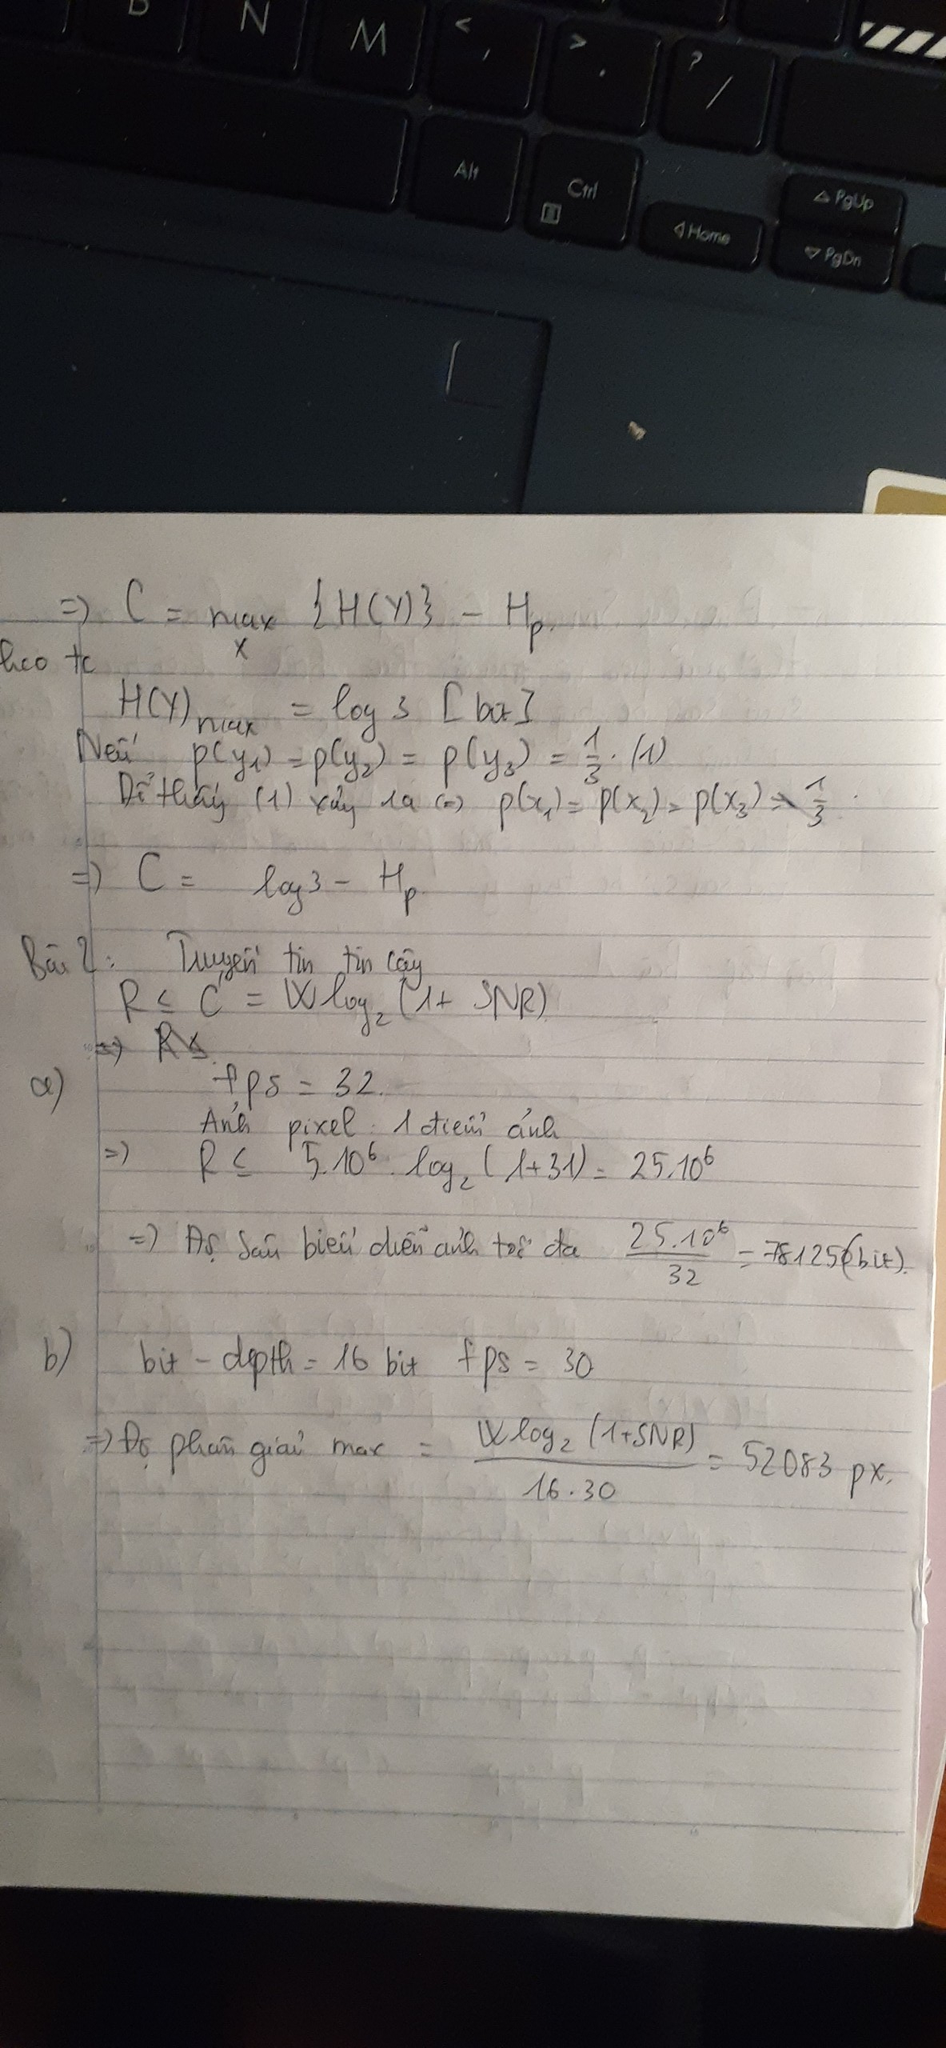 B N M < , > . ? /
Alt Ctrl Home PgUp
PgDn
=> C = max {H(Y)} - Hp.
x
heo tc
H(Y)max = log 3 [bit]
Nếu p(y1) = p(y2) = p(y3) = 1/3 . (1)
Dễ thấy (1) xảy ra <=> p(x1) = p(x2) = p(x3) = 1/3 .
=> C = log3 - Hp
Bài 2: Truyền tin tin cậy
R ≤ C = W log2 (1 + SNR)
=> R ≤
a) fps = 32.
Ảnh pixel : 1 điểm ảnh
=> R ≤ 5.10^6 . log2 (1+31) = 25.10^6
=> Độ sâu biểu diễn ảnh tối đa 25.10^6/32 = 781250 (bit).
b) bit - depth = 16 bit fps = 30
=> Độ phân giải max = W log2 (1+SNR)/16.30 = 52083 px.